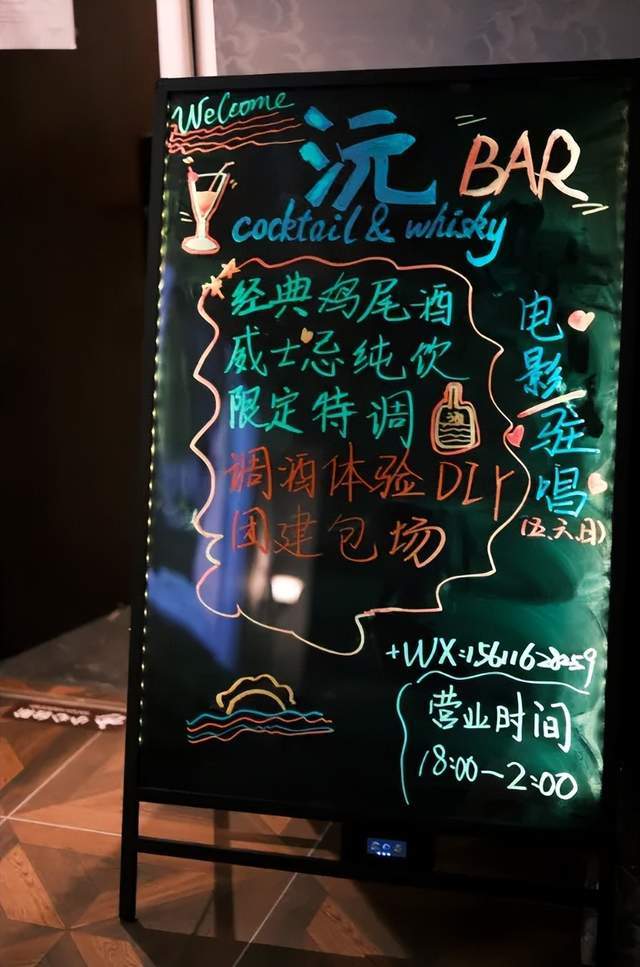 Welcome
沅 BAR
cocktail & whisky
经典鸡尾酒
威士忌纯饮
限定特调
调酒体验DIY
团建包场
电影/驻唱
(五.六.日)
+WX:15611628259
营业时间
18:00-2:00